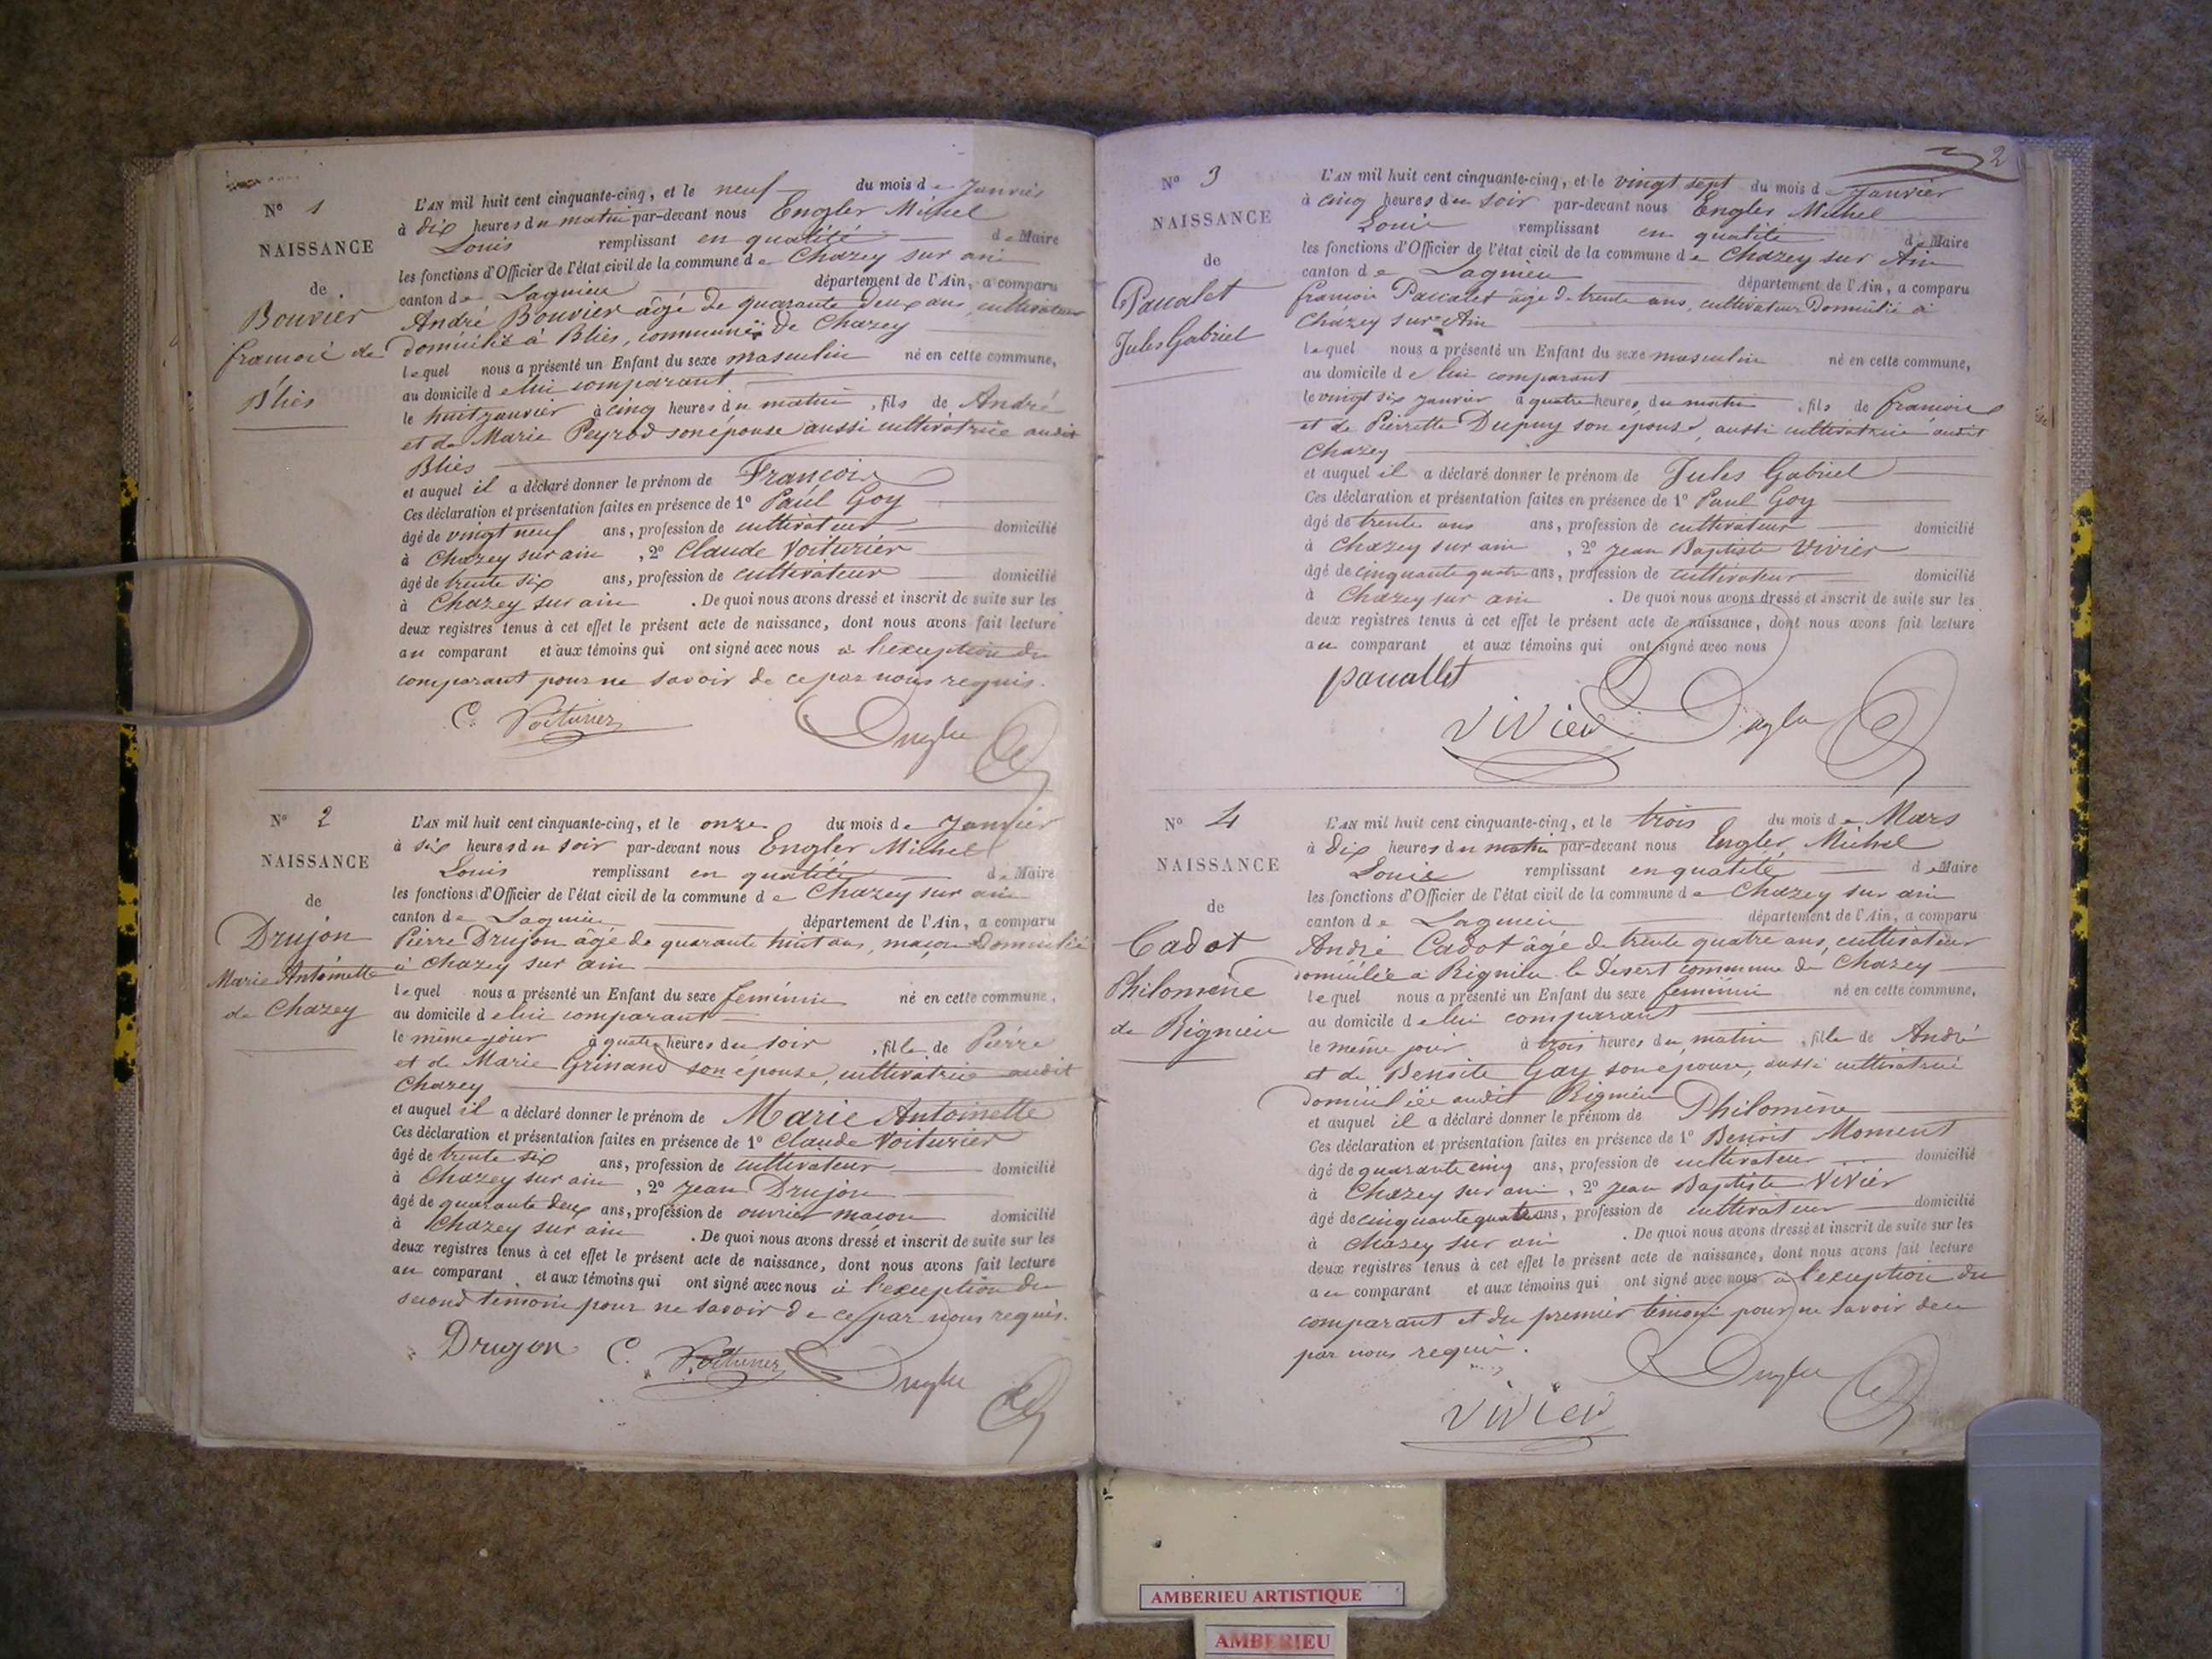 N° 1
NAISSANCE
de
Bouvier
françois de
Blies
L'AN mil huit cent cinquante-cinq, et le neuf du mois de Janvier
à dix heures du matin par-devant nous Engler Michel
Louis remplissant en qualité de Maire
les fonctions d'Officier de l'état civil de la commune de Chazey sur ain
canton de Lagnieu département de l'Ain, a comparu
André Bouvier âgé de quarante deux ans, cultivateur
domicilié à Blies, commune de Chazey
lequel nous a présenté un Enfant du sexe masculin né en cette commune,
au domicile de lui comparant
le huit janvier à cinq heures du matin, fils de André
et de Marie Peyrod son épouse aussi cultivatrice audit
Blies
et auquel il a déclaré donner le prénom de François
Ces déclaration et présentation faites en présence de 1° Paul Goy
âgé de vingt neuf ans, profession de cultivateur domicilié
à Chazey sur ain, 2° Claude Voiturier
âgé de trente six ans, profession de cultivateur domicilié
à Chazey sur ain. De quoi nous avons dressé et inscrit de suite sur les
deux registres tenus à cet effet le présent acte de naissance, dont nous avons fait lecture
au comparant et aux témoins qui ont signé avec nous à l'exception du
comparant pour ne savoir de ce par nous requis.
C. Voiturier
N° 2
NAISSANCE
de
Drujon
Marie Antoinette
de Chazey
L'AN mil huit cent cinquante-cinq, et le onze du mois de Janvier
à six heures du soir par-devant nous Engler Michel
Louis remplissant en qualité de Maire
les fonctions d'Officier de l'état civil de la commune de Chazey sur ain
canton de Lagnieu département de l'Ain, a comparu
Pierre Drujon âgé de quarante huit ans, maçon Domicilié
à Chazey sur ain
lequel nous a présenté un Enfant du sexe feminin né en cette commune,
au domicile de lui comparant
le même jour à quatre heures du soir, fille de Pierre
et de Marie Grinand son épouse, cultivatrice audit
Chazey
et auquel il a déclaré donner le prénom de Marie Antoinette
Ces déclaration et présentation faites en présence de 1° Claude Voiturier
âgé de trente six ans, profession de cultivateur domicilié
à Chazey sur ain, 2° Jean Drujon
âgé de quarante deux ans, profession de ouvrier macon domicilié
à Chazey sur ain. De quoi nous avons dressé et inscrit de suite sur les
deux registres tenus à cet effet le présent acte de naissance, dont nous avons fait lecture
au comparant et aux témoins qui ont signé avec nous à l'exception du
second temoin pour ne savoir de ce par nous requis.
Drujon C. Voiturier
2
N° 3
NAISSANCE
de
Paccalet
Jules Gabriel
L'AN mil huit cent cinquante-cinq, et le vingt sept du mois de Janvier
à cinq heures du soir par-devant nous Engler Michel
Louis remplissant en qualité de Maire
les fonctions d'Officier de l'état civil de la commune de Chazey sur Ain
canton de Lagnieu département de l'Ain, a comparu
françois Paccalet âgé de trente ans, cultivateur Domicilié à
Chazey sur Ain
lequel nous a présenté un Enfant du sexe masculin né en cette commune,
au domicile de lui comparant
le vingt six janvier à quatre heures du matin, fils de françois
et de Pierrette Dupuy son épouse, aussi cultivatrice audit
Chazey
et auquel il a déclaré donner le prénom de Jules Gabriel
Ces déclaration et présentation faites en présence de 1° Paul Goy
âgé de trente ans ans, profession de cultivateur domicilié
à Chazey sur ain, 2° Jean Baptiste Vivier
âgé de cinquante quatre ans, profession de cultivateur domicilié
à Chazey sur ain. De quoi nous avons dressé et inscrit de suite sur les
deux registres tenus à cet effet le présent acte de naissance, dont nous avons fait lecture
au comparant et aux témoins qui ont signé avec nous
paccallet
Vivier
N° 4
NAISSANCE
de
Cadot
Philomène
de Rignieu
L'AN mil huit cent cinquante-cinq, et le trois du mois de Mars
à Dix heures du matin par-devant nous Engler Michel
Louis remplissant en qualité de Maire
les fonctions d'Officier de l'état civil de la commune de Chazey sur ain
canton de Lagnieu département de l'Ain, a comparu
André Cadot âgé de trente quatre ans, cultivateur
domicilié à Rignieu le Désert commune de Chazey
lequel nous a présenté un Enfant du sexe feminin né en cette commune,
au domicile de lui comparant
le même jour à trois heures du matin, fille de André
et de Benoite Gay son épouse, aussi cultivatrice
domiciliée audit Rignieu
et auquel il a déclaré donner le prénom de Philomène
Ces déclaration et présentation faites en présence de 1° Benoit Moment
âgé de quarante cinq ans, profession de cultivateur domicilié
à Chazey sur ain, 2° Jean Baptiste Vivier
âgé de cinquante quatre ans, profession de cultivateur domicilié
à Chazey sur ain. De quoi nous avons dressé et inscrit de suite sur les
deux registres tenus à cet effet le présent acte de naissance, dont nous avons fait lecture
au comparant et aux témoins qui ont signé avec nous à l'exception du
comparant et du premier témoin pour ne savoir de ce
par nous requis.
Vivier
AMBERIEU ARTISTIQUE
AMBERIEU